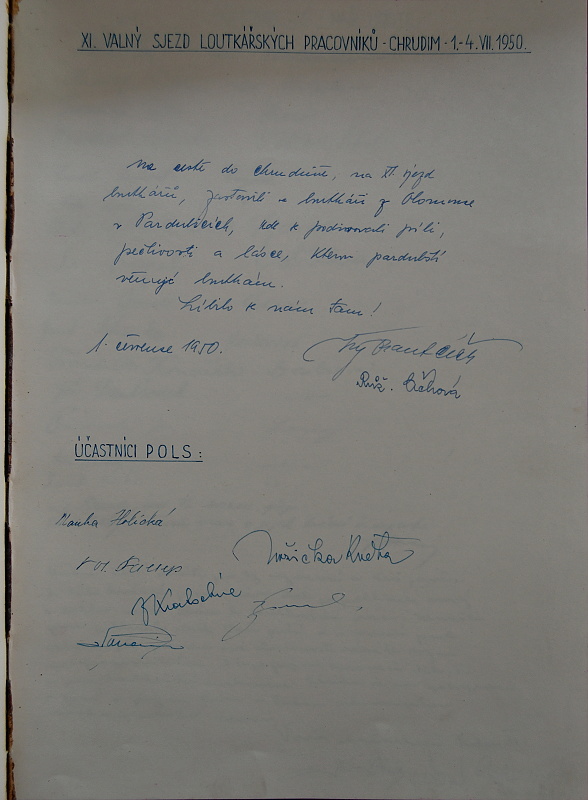 XI. VALNÝ SJEZD LOUTKÁŘSKÝCH PRACOVNÍKŮ - CHRUDIM - 1.-4. VII. 1950.
Na cestě do Chrudimě, na XI. sjezd
loutkářů, zastavili se loutkáři z Olomouce
v Pardubicích, kde se podivovali píli,
pečlivosti a lásce, kterou pardubští
věnují loutkám.
Líbilo se nám tam!
1. července 1950.
Růž. Číhová
ÚČASTNÍCI POLS:
Růžička